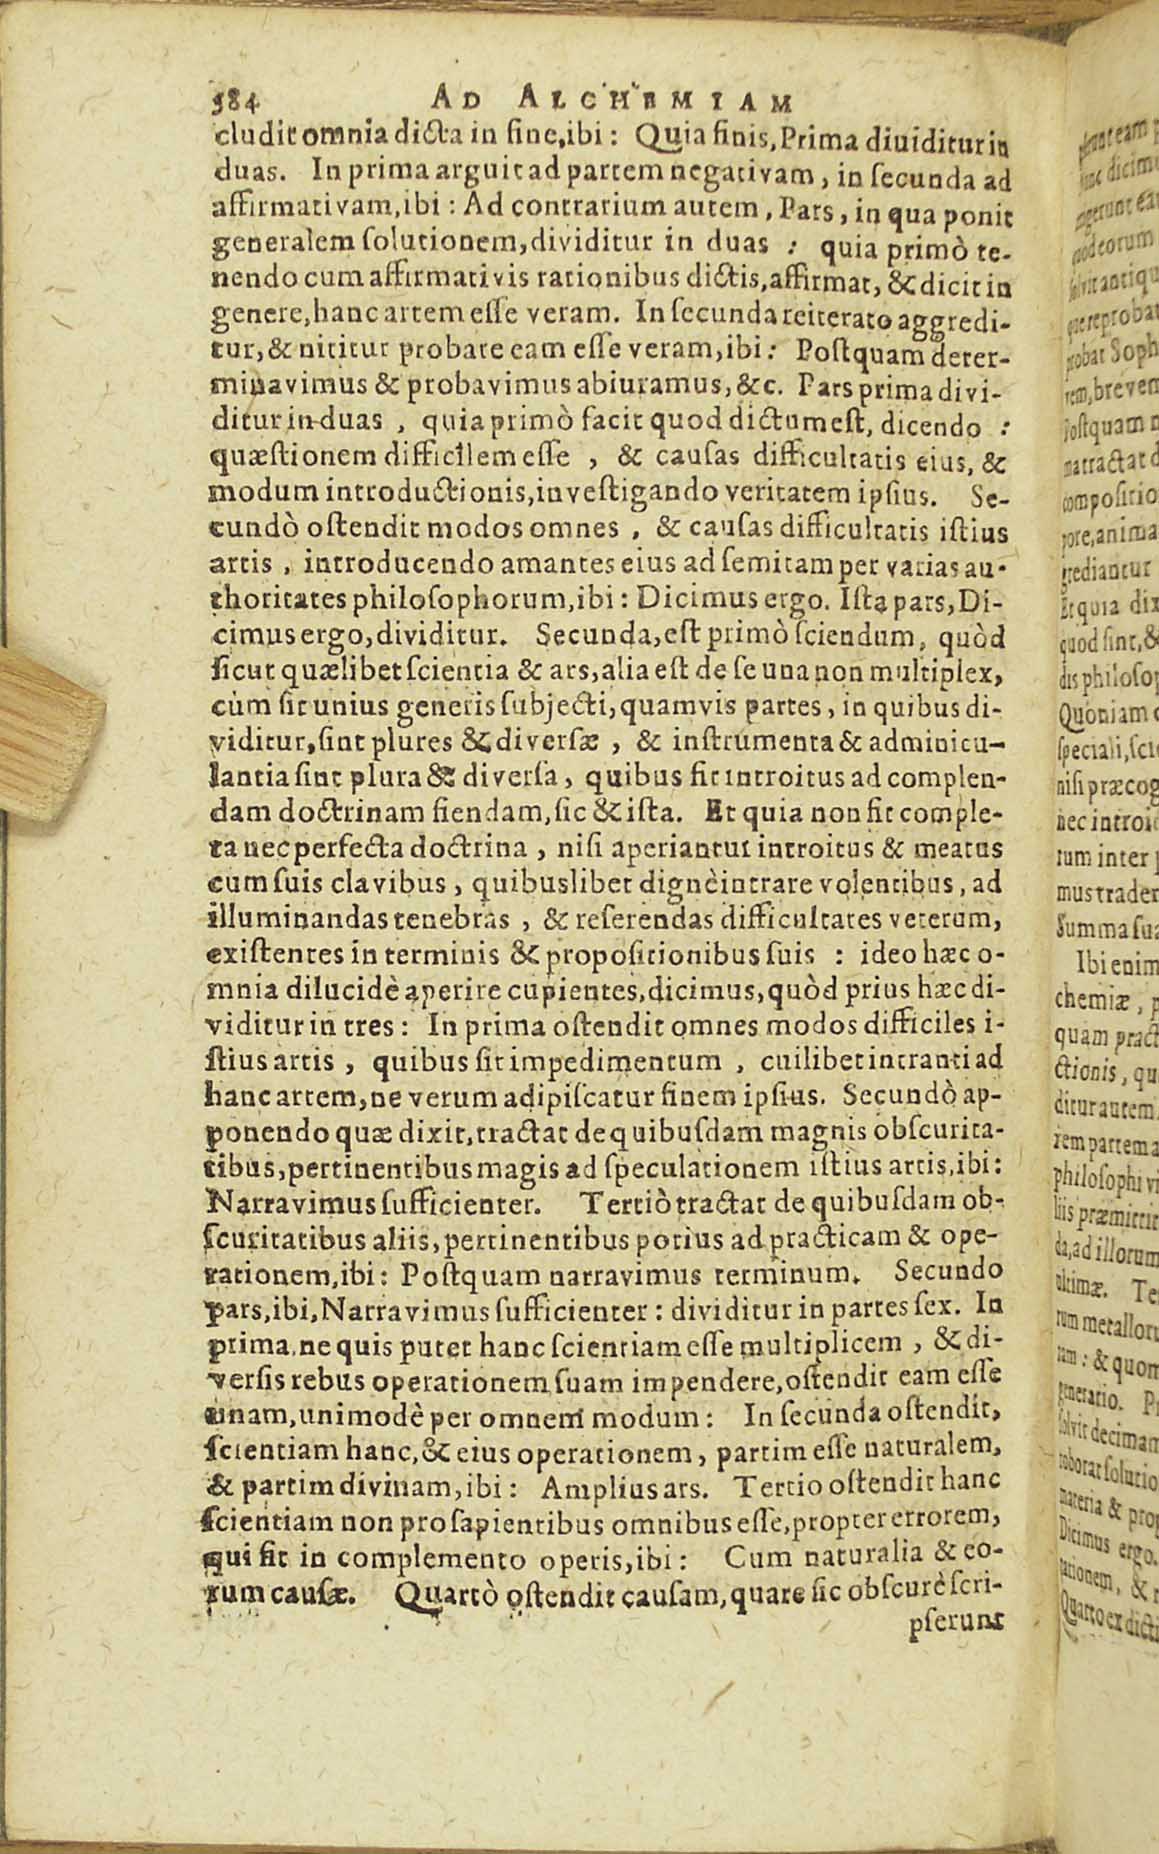 584 AD ALCHEMIAM
cludit omnia dicta in fine, ibi: Quia finis, Prima diuiditur in
duas. In prima arguit ad partem negativam, in ſecunda ad
affirmativam, ibi: Ad contrarium autem, Pars, in qua ponit
generalem ſolutionem, dividitur in duas: quia primò te-
nendo cum affirmativis rationibus dictis, affirmat, & dicit in
genere, hanc artem eſſe veram. In ſecunda reiterato aggredi-
tur, & nititur probare eam eſſe veram, ibi: Poſtquam deter-
minavimus & probavimus abiuramus, &c. Pars prima divi-
ditur in duas, quia primò facit quod dictum eſt, dicendo:
quæſtionem difficilem eſſe, & cauſas difficultatis eius, &
modum introductionis, inveſtigando veritatem ipſius. Se-
cundò oſtendit modos omnes, & cauſas difficultatis iſtius
artis, introducendo amantes eius ad ſemitam per varias au-
thoritates philoſophorum, ibi: Dicimus ergo. Iſta pars, Di-
cimus ergo, dividitur. Secunda, eſt primò ſciendum, quòd
ſicut quælibet ſcientia & ars, alia eſt de ſe una non multiplex,
cùm ſit unius generis ſubjecti, quamvis partes, in quibus di-
viditur, ſint plures & diverſæ, & inſtrumenta & adminicu-
lantia ſint plura & diverſa, quibus fit introitus ad complen-
dam doctrinam fiendam, ſic & iſta. Et quia non fit comple-
ta nec perfecta doctrina, niſi aperiantur introitus & meatus
cum ſuis clavibus, quibuslibet dignè intrare volentibus, ad
illuminandas tenebras, & reſerendas difficultates veterum,
exiſtentes in terminis & propoſitionibus ſuis: ideo hæc o-
mnia dilucidè aperire cupientes, dicimus, quòd prius hæc di-
viditur in tres: In prima oſtendit omnes modos difficiles i-
ſtius artis, quibus fit impedimentum, cuilibet intranti ad
hanc artem, ne verum adipiſcatur finem ipſius. Secundò ap-
ponendo quæ dixit, tractat de quibuſdam magnis obſcurita-
tibus, pertinentibus magis ad ſpeculationem iſtius artis, ibi:
Narravimus ſufficienter. Tertiò tractat de quibuſdam ob-
ſcuritatibus aliis, pertinentibus potius ad practicam & ope-
rationem, ibi: Poſtquam narravimus terminum. Secundo
pars, ibi, Narravimus ſufficienter: dividitur in partes ſex. In
prima, ne quis putet hanc ſcientiam eſſe multiplicem, & di-
verſis rebus operationem ſuam impendere, oſtendit eam eſſe
unam, unimodè per omnem modum: In ſecunda oſtendit,
ſcientiam hanc, & eius operationem, partim eſſe naturalem,
& partim divinam, ibi: Amplius ars. Tertio oſtendit hanc
ſcientiam non pro ſapientibus omnibus eſſe, propter errorem,
qui fit in complemento operis, ibi: Cum naturalia & eo-
rum cauſæ. Quartò oſtendit cauſam, quare ſic obſcurè ſcri-
pſerunt